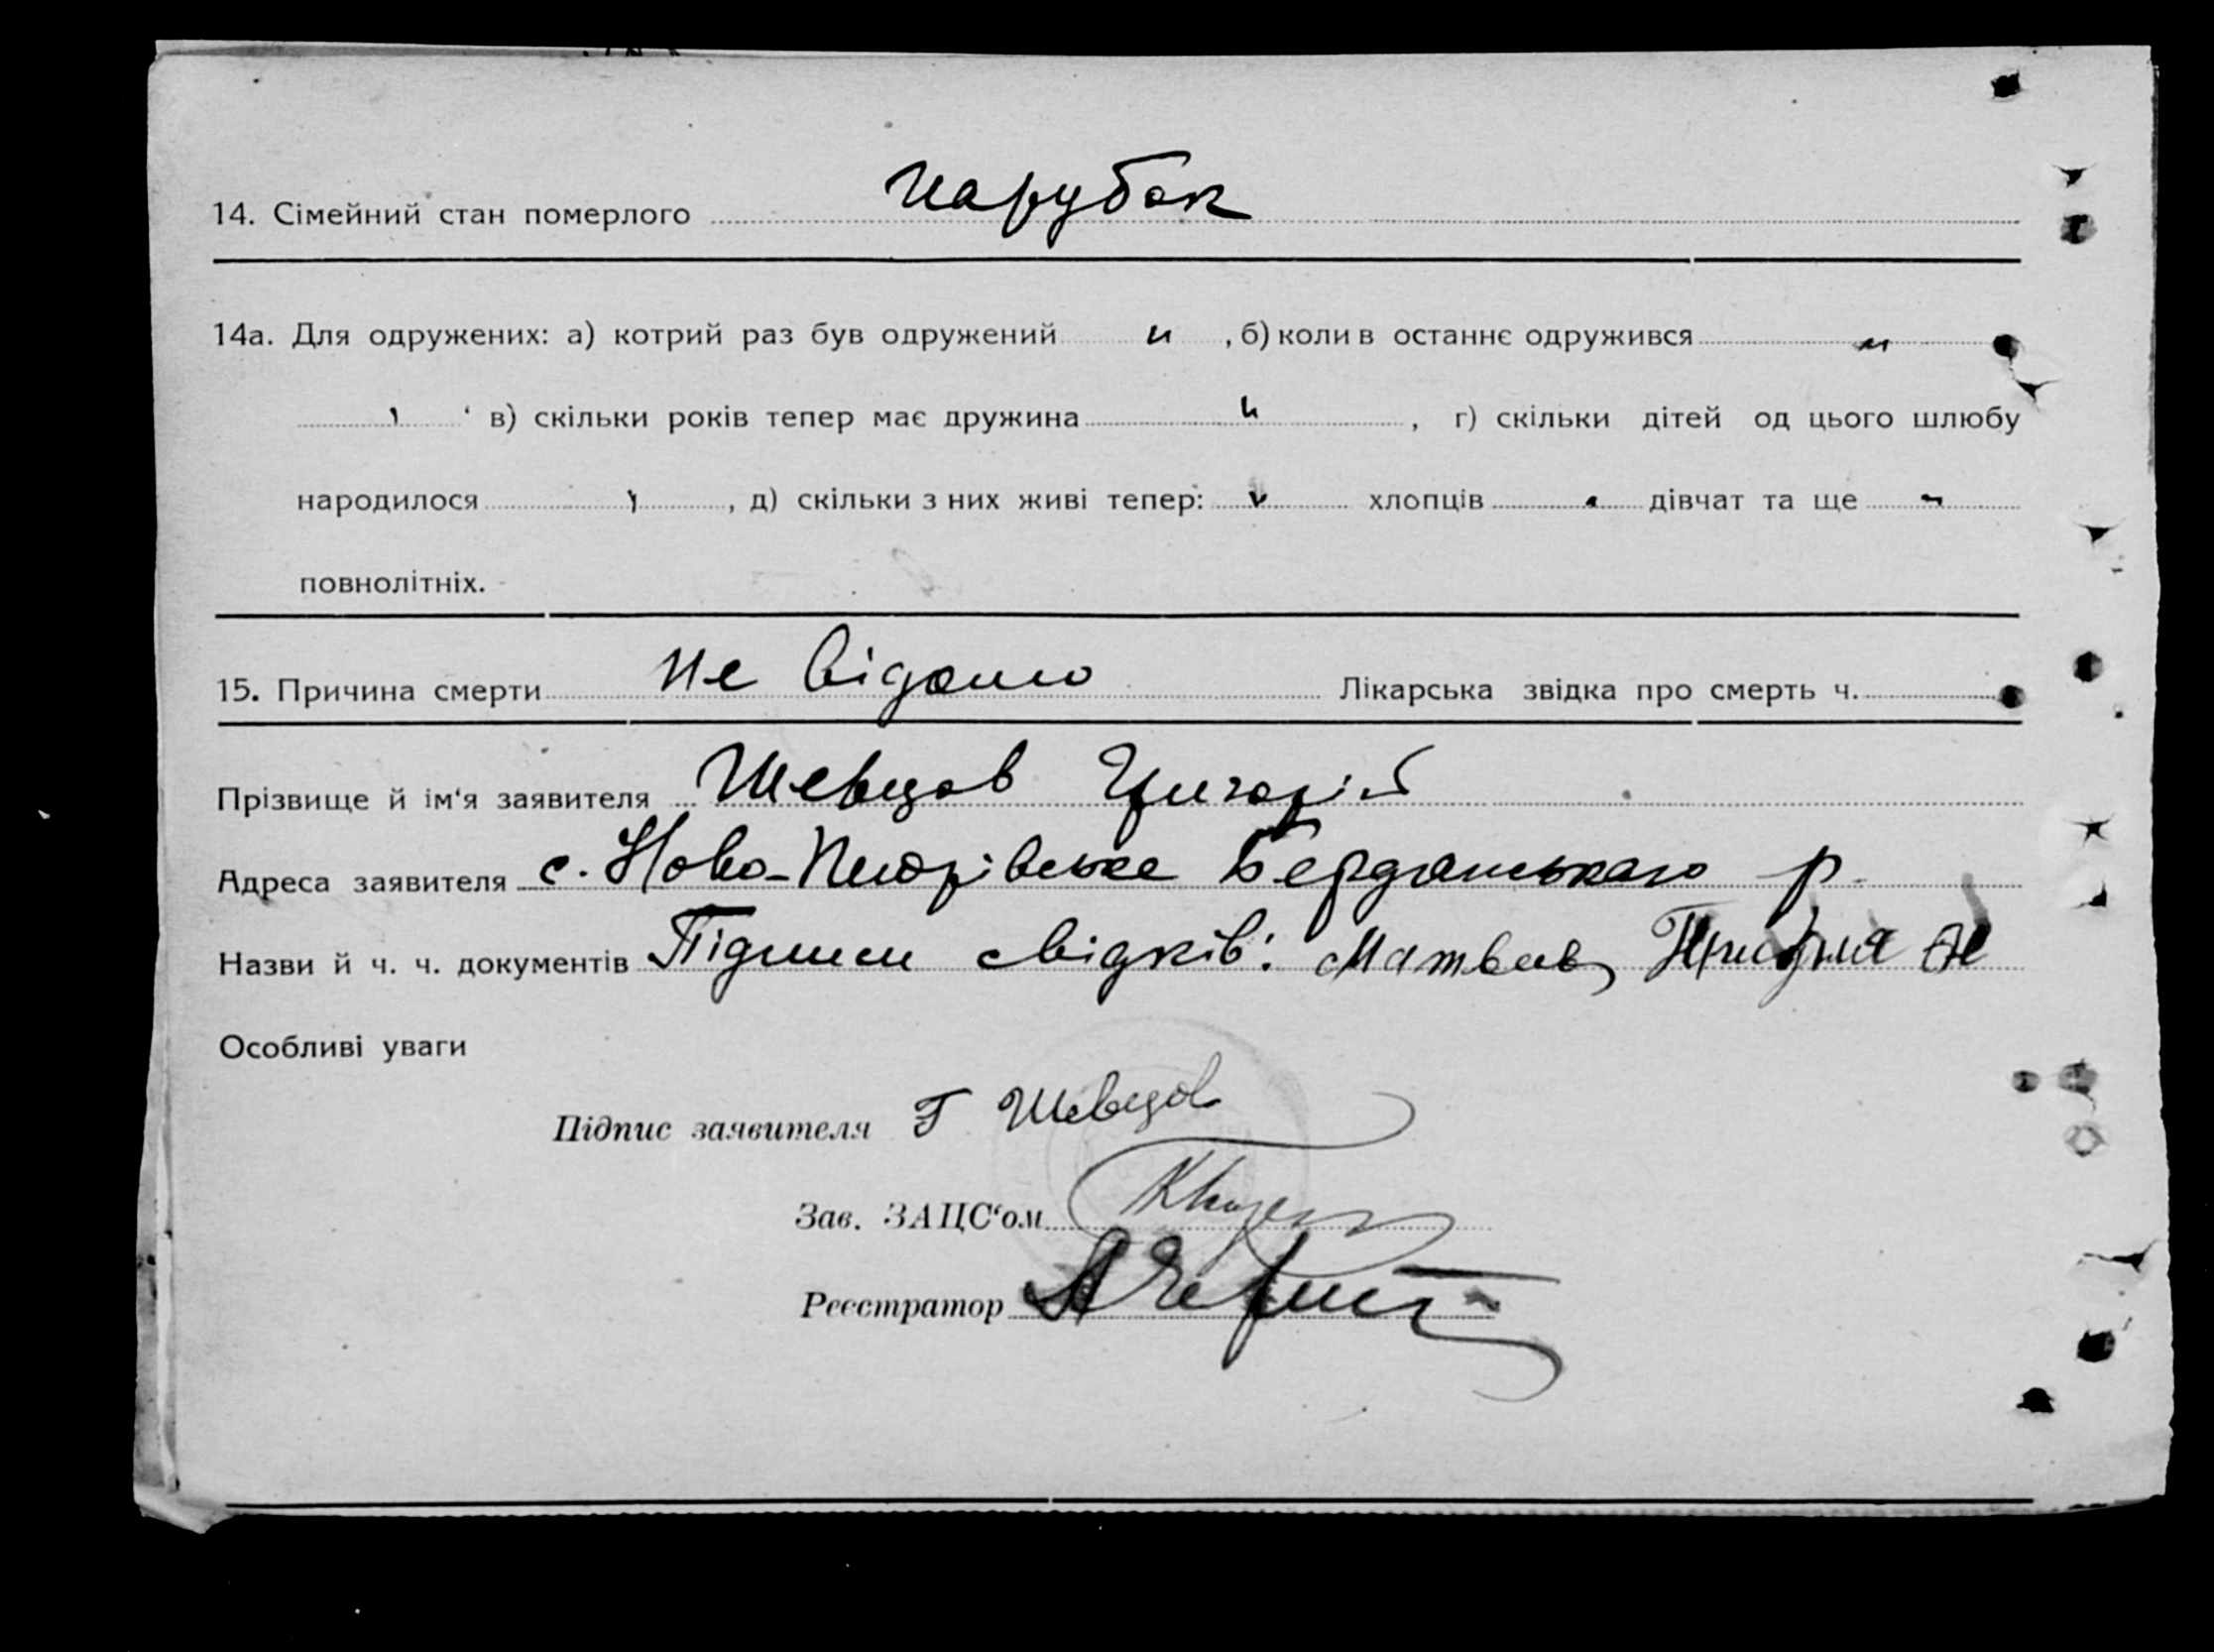 14. Сімейний стан померлого парубок
14а. Для одружених: а) котрий раз був одружений „ , б) коли в останнє одружився „
в) скільки років тепер має дружина „ , г) скільки дітей од цього шлюбу
народилося , д) скільки з них живі тепер: хлопців дівчат та ще
повнолітніх.
15. Причина смерти не відомо Лікарська звідка про смерть ч.
Прізвище й ім'я заявителя Шевцов Григорій
Адреса заявителя с. Ново-Петрівське Бердянського р.
Назви й ч. ч. документів Підписи свідків: Матвеев,
Особливі уваги
Підпис заявителя Г Шевцов
Зав. ЗАЦС'ом
Реєстратор